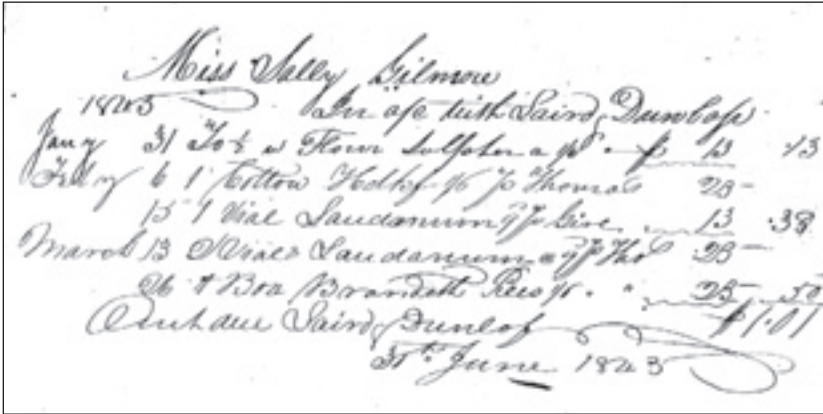 Miss Sally Gilmore
1843 In a/c with Laird Dunlop
Jany 31 To ½ Flour Sulpher $ 13 .13
Feby 6 1 Cotton Hdkf Thomas 25
15 1 Vial Laudanum 13 .38
March 13 2 Vials Laudanum 25
26 1 Box Brandeth 25 .50
Amt due Laird Dunlop $1.01
June 1843